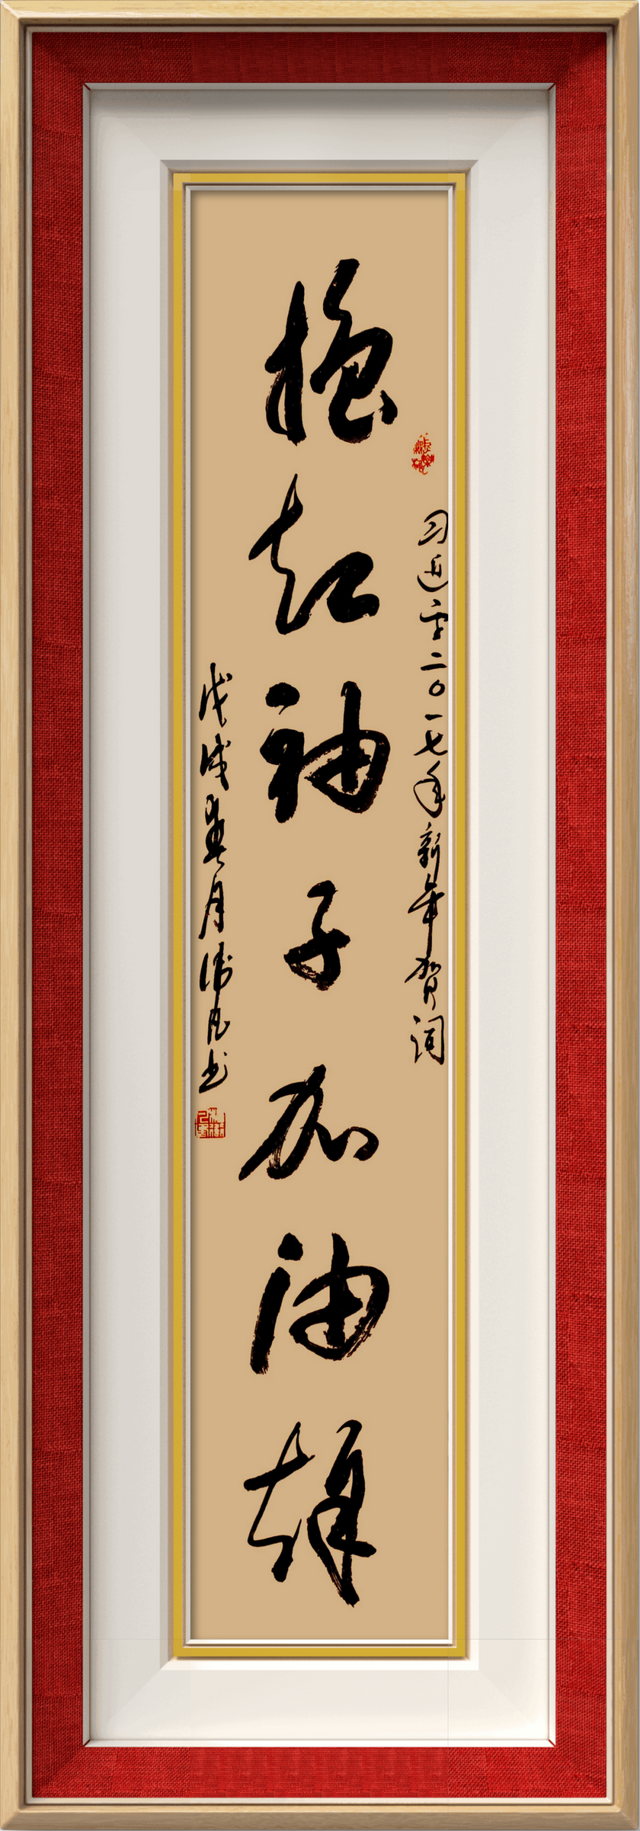 习近平二〇一七年新年贺词
撸起袖子加油幹
戊戌春月 书